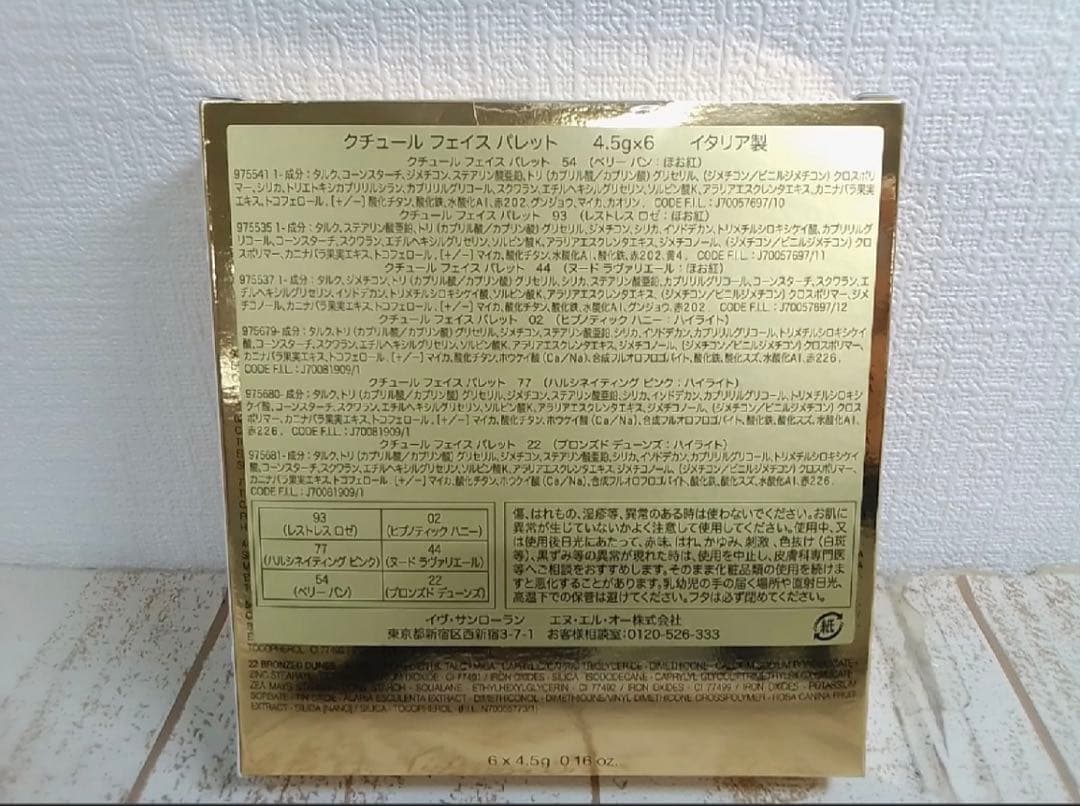 クチュール フェイス パレット 4.5g×6 イタリア製
クチュール フェイス パレット 54 (ベリー バン：ほお紅)
975541 1-成分：タルク、コーンスターチ、ジメチコン、ステアリン酸亜鉛、トリ (カプリル酸/カプリン酸) グリセリル、(ジメチコン/ビニルジメチコン) クロスポリ
マー、シリカ、トリエトキシカプリリルシラン、カプリリルグリコール、スクワラン、エチルヘキシルグリセリン、ソルビン酸K、アラリアエスクレンタエキス、カニナバラ果実
エキス、トコフェロール、[+/-] 酸化チタン、酸化鉄、水酸化Al、赤202、グンジョウ、マイカ、カオリン、 CODE F.I.L. : J70057697/10
クチュール フェイス パレット 93 (レストレス ロゼ：ほお紅)
975535 1-成分：タルク、ステアリン酸亜鉛、トリ (カプリル酸/カプリン酸) グリセリル、ジメチコン、シリカ、イソドデカン、トリメチルシロキシケイ酸、カプリリルグ
リコール、コーンスターチ、スクワラン、エチルヘキシルグリセリン、ソルビン酸K、アラリアエスクレンタエキス、ジメチコノール、(ジメチコン/ビニルジメチコン) クロ
スポリマー、カニナバラ果実エキス、トコフェロール、[+/-] マイカ、酸化チタン、水酸化Al、酸化鉄、赤202、黄4、 CODE F.I.L. : J70057697/11
クチュール フェイス パレット 44 (ヌード ラヴァリエール：ほお紅)
975537 1-成分：タルク、ジメチコン、トリ (カプリル酸/カプリン酸) グリセリル、シリカ、ステアリン酸亜鉛、カプリリルグリコール、コーンスターチ、スクワラン、エ
チルヘキシルグリセリン、イソドデカン、トリメチルシロキシケイ酸、ソルビン酸K、アラリアエスクレンタエキス、(ジメチコン/ビニルジメチコン) クロスポリマー、ジメ
チコノール、カニナバラ果実エキス、トコフェロール、[+/-] マイカ、酸化チタン、酸化鉄、水酸化Al、グンジョウ、赤202、 CODE F.I.L. : J70057697/12
クチュール フェイス パレット 02 (ヒプノティック ハニー：ハイライト)
975679-成分：タルク、トリ (カプリル酸/カプリン酸) グリセリル、ジメチコン、ステアリン酸亜鉛、シリカ、イソドデカン、カプリリルグリコール、トリメチルシロキシケイ
酸、コーンスターチ、スクワラン、エチルヘキシルグリセリン、ソルビン酸K、アラリアエスクレンタエキス、ジメチコノール、(ジメチコン/ビニルジメチコン) クロスポリマー、
カニナバラ果実エキス、トコフェロール、[+/-] マイカ、酸化チタン、ホウケイ酸 (Ca/Na)、合成フルオロフロゴパイト、酸化鉄、酸化スズ、水酸化Al、赤226、
CODE F.I.L. : J70081909/1
クチュール フェイス パレット 77 (ハルシネイティング ピンク：ハイライト)
975680-成分：タルク、トリ (カプリル酸/カプリン酸) グリセリル、ジメチコン、ステアリン酸亜鉛、シリカ、イソドデカン、カプリリルグリコール、トリメチルシロキシ
ケイ酸、コーンスターチ、スクワラン、エチルヘキシルグリセリン、ソルビン酸K、アラリアエスクレンタエキス、ジメチコノール、(ジメチコン/ビニルジメチコン) クロス
ポリマー、カニナバラ果実エキス、トコフェロール、[+/-] マイカ、酸化チタン、ホウケイ酸 (Ca/Na)、合成フルオロフロゴパイト、酸化鉄、酸化スズ、水酸化Al、
赤226、 CODE F.I.L. : J70081909/1
クチュール フェイス パレット 22 (ブロンズド デューンズ：ハイライト)
975681-成分：タルク、トリ (カプリル酸/カプリン酸) グリセリル、ジメチコン、ステアリン酸亜鉛、シリカ、イソドデカン、カプリリルグリコール、トリメチルシロキシケイ
酸、コーンスターチ、スクワラン、エチルヘキシルグリセリン、ソルビン酸K、アラリアエスクレンタエキス、ジメチコノール、(ジメチコン/ビニルジメチコン) クロスポリマー、
カニナバラ果実エキス、トコフェロール、[+/-] マイカ、酸化チタン、ホウケイ酸 (Ca/Na)、合成フルオロフロゴパイト、酸化鉄、酸化スズ、水酸化Al、赤226、
CODE F.I.L. : J70081909/1
93 02
(レストレス ロゼ) (ヒプノティック ハニー)
77 44
(ハルシネイティング ピンク) (ヌード ラヴァリエール)
54 22
(ベリー バン) (ブロンズド デューンズ)
傷、はれもの、湿疹等、異常のある時は使わないでください。お肌に
異常が生じていないかよく注意して使用してください。使用中、又
は使用後日光にあたって、赤味、はれ、かゆみ、刺激、色抜け(白斑
等)、黒ずみ等の異常が現れた時は、使用を中止し、皮膚科専門医
等へご相談をおすすめします。そのまま化粧品類の使用を続けま
すと悪化することがあります。乳幼児の手の届く場所や直射日光、
高温下での保管は避けてください。フタは必ず閉めてください。
イヴ・サンローラン エヌ・エル・オー株式会社
東京都新宿区西新宿3-7-1 お客様相談室：0120-526-333
紙
TOCOPHEROL
22 BRONZED DUNES TALC MICA CAPRYLIC/CAPRIC TRIGLYCERIDE - DIMETHICONE
ZINC STEARATE DIOXIDE CI 77491 / IRON OXIDES - SILICA - ISODODECANE - CAPRYLYL GLYCOL
ZEA MAYS STARCH - SQUALANE - ETHYLHEXYLGLYCERIN - CI 77492 / IRON OXIDES - CI 77499 / IRON OXIDES - POTASSIUM
SORBATE - TIN OXIDE - ALARIA ESCULENTA EXTRACT - DIMETHICONOL - DIMETHICONE/VINYL DIMETHICONE CROSSPOLYMER - ROSA CANINA FRUIT
EXTRACT - SILICA [NANO] / SILICA - TOCOPHEROL
6 x 4.5g 0.16 oz.